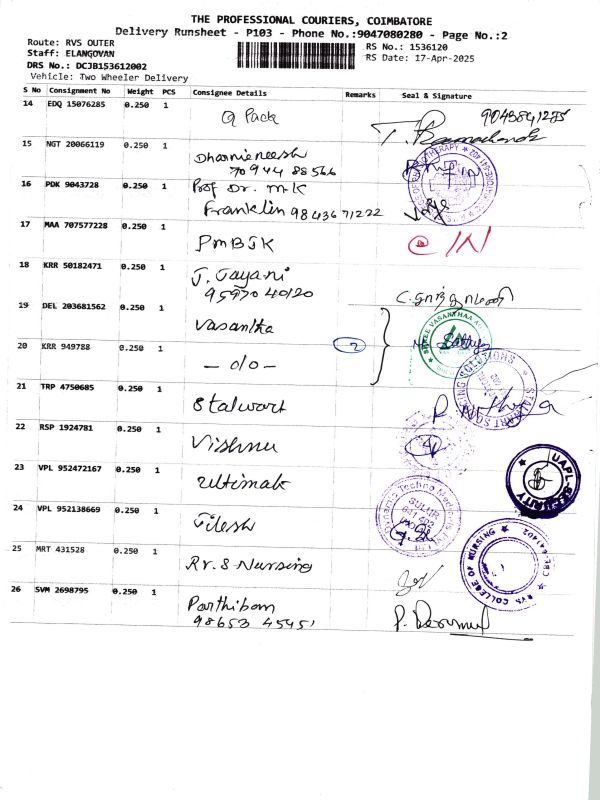 THE PROFESSIONAL COURIERS, COIMBATORE
Delivery Runsheet - P103 - Phone No.:9047080280 - Page No.:2
Route: RVS OUTER
Staff: ELANGOVAN
DRS No.: DCJB153612002
Vehicle: Two Wheeler Delivery
RS No.: 1536120
RS Date: 17-Apr-2025
S No Consignment No Weight PCS Consignee Details Remarks Seal & Signature
14 EDQ 15076285 0.250 1 Q Pack
15 NGT 20066119 0.250 1 Dharnieneesh
70944 88566
16 PDK 9043728 0.250 1 Prof Dr. M.K
Franklin 98436 71222
17 MAA 707577228 0.250 1 PMBJK
18 KRR 50182471 0.250 1 J. Jayani
95970 40120
19 DEL 203681562 0.250 1 Vasantha
20 KRR 949788 0.250 1 - do - 2
21 TRP 4750685 0.250 1 Stalwart
STALWART SOLUTIONS
22 RSP 1924781 0.250 1 Vishnu
23 VPL 952472167 0.250 1 Ultimak
UAPL-SECURITY
24 VPL 952138669 0.250 1 Jilesh
SULUR
641 402
25 MRT 431528 0.250 1 Rr. S Nursing
RVS COLLEGE OF NURSING
CBE-641402
26 SVM 2698795 0.250 1 Parthiban
98653 45451